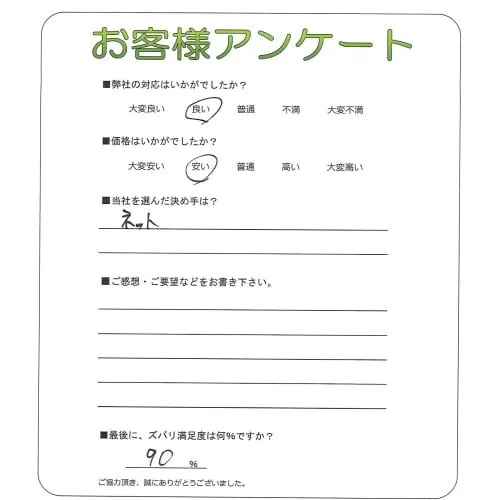 お客様アンケート
■弊社の対応はいかがでしたか？
大変良い 良い 普通 不満 大変不満
■価格はいかがでしたか？
大変安い 安い 普通 高い 大変高い
■当社を選んだ決め手は？
ネット
■ご感想・ご要望などをお書き下さい。
■最後に、ズバリ満足度は何％ですか？
90 ％
ご協力頂き、誠にありがとうございました。